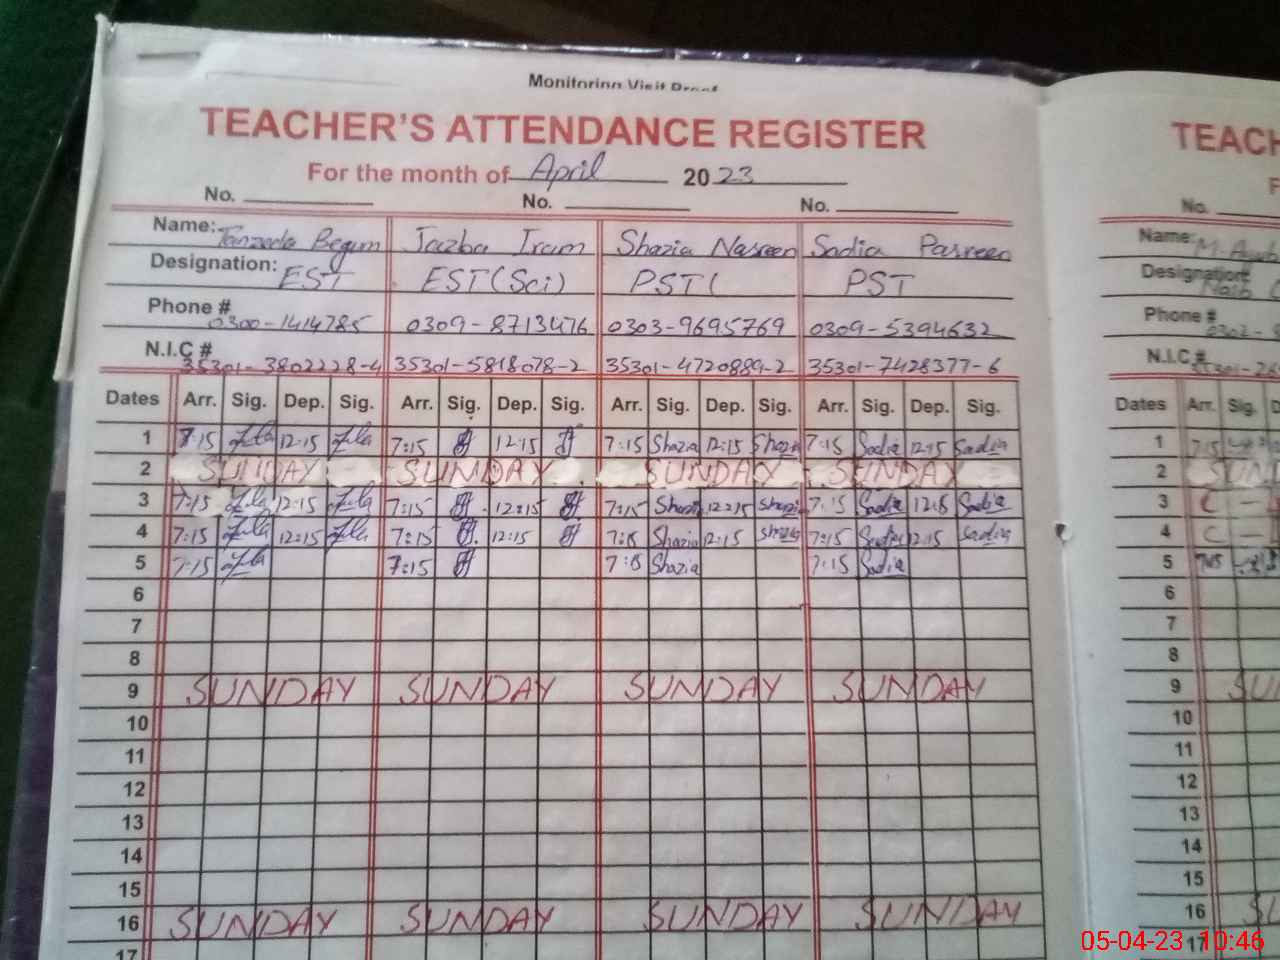 Monitoring Visit Proof
TEACHER'S ATTENDANCE REGISTER
For the month of April 2023
No. No. No.
Name: Begum Jazba Iram Shazia Nasreen Sadia Parveen
Designation: EST EST (Sci) PST ( PST
Phone # 0300-1414785 0309-8713476 0303-9695769 0309-5394632
N.I.C # 35301-3802228-4 35301-5818078-2 35301-4720889-2 35301-7428377-6
Dates Arr. Sig. Dep. Sig. Arr. Sig. Dep. Sig. Arr. Sig. Dep. Sig. Arr. Sig. Dep. Sig.
1 7:15 12:15 7:15 12:15 7:15 Shazia 12:15 Shazia 7:15 Sadia 12:15 Sadia
2 SUNDAY SUNDAY SUNDAY SUNDAY
3 7:15 12:15 7:15 12:15 7:15 Shazia 12:15 Shazia 7:15 Sadia 12:15 Sadia
4 7:15 12:15 7:15 12:15 7:15 Shazia 12:15 Shazia 7:15 Sadia 12:15 Sadia
5 7:15 7:15 7:15 Shazia 7:15 Sadia
6
7
8
9 SUNDAY SUNDAY SUNDAY SUNDAY
10
11
12
13
14
15
16 SUNDAY SUNDAY SUNDAY SUNDAY
17
TEACH
No.
Name: M.
Designation:
Phone #
N.I.C #
Dates Arr. Sig.
1 7:15
2 SUN
3 C –
4 C –
5 7:15
6
7
8
9 SU
10
11
12
13
14
15
16
17
05-04-23 10:46